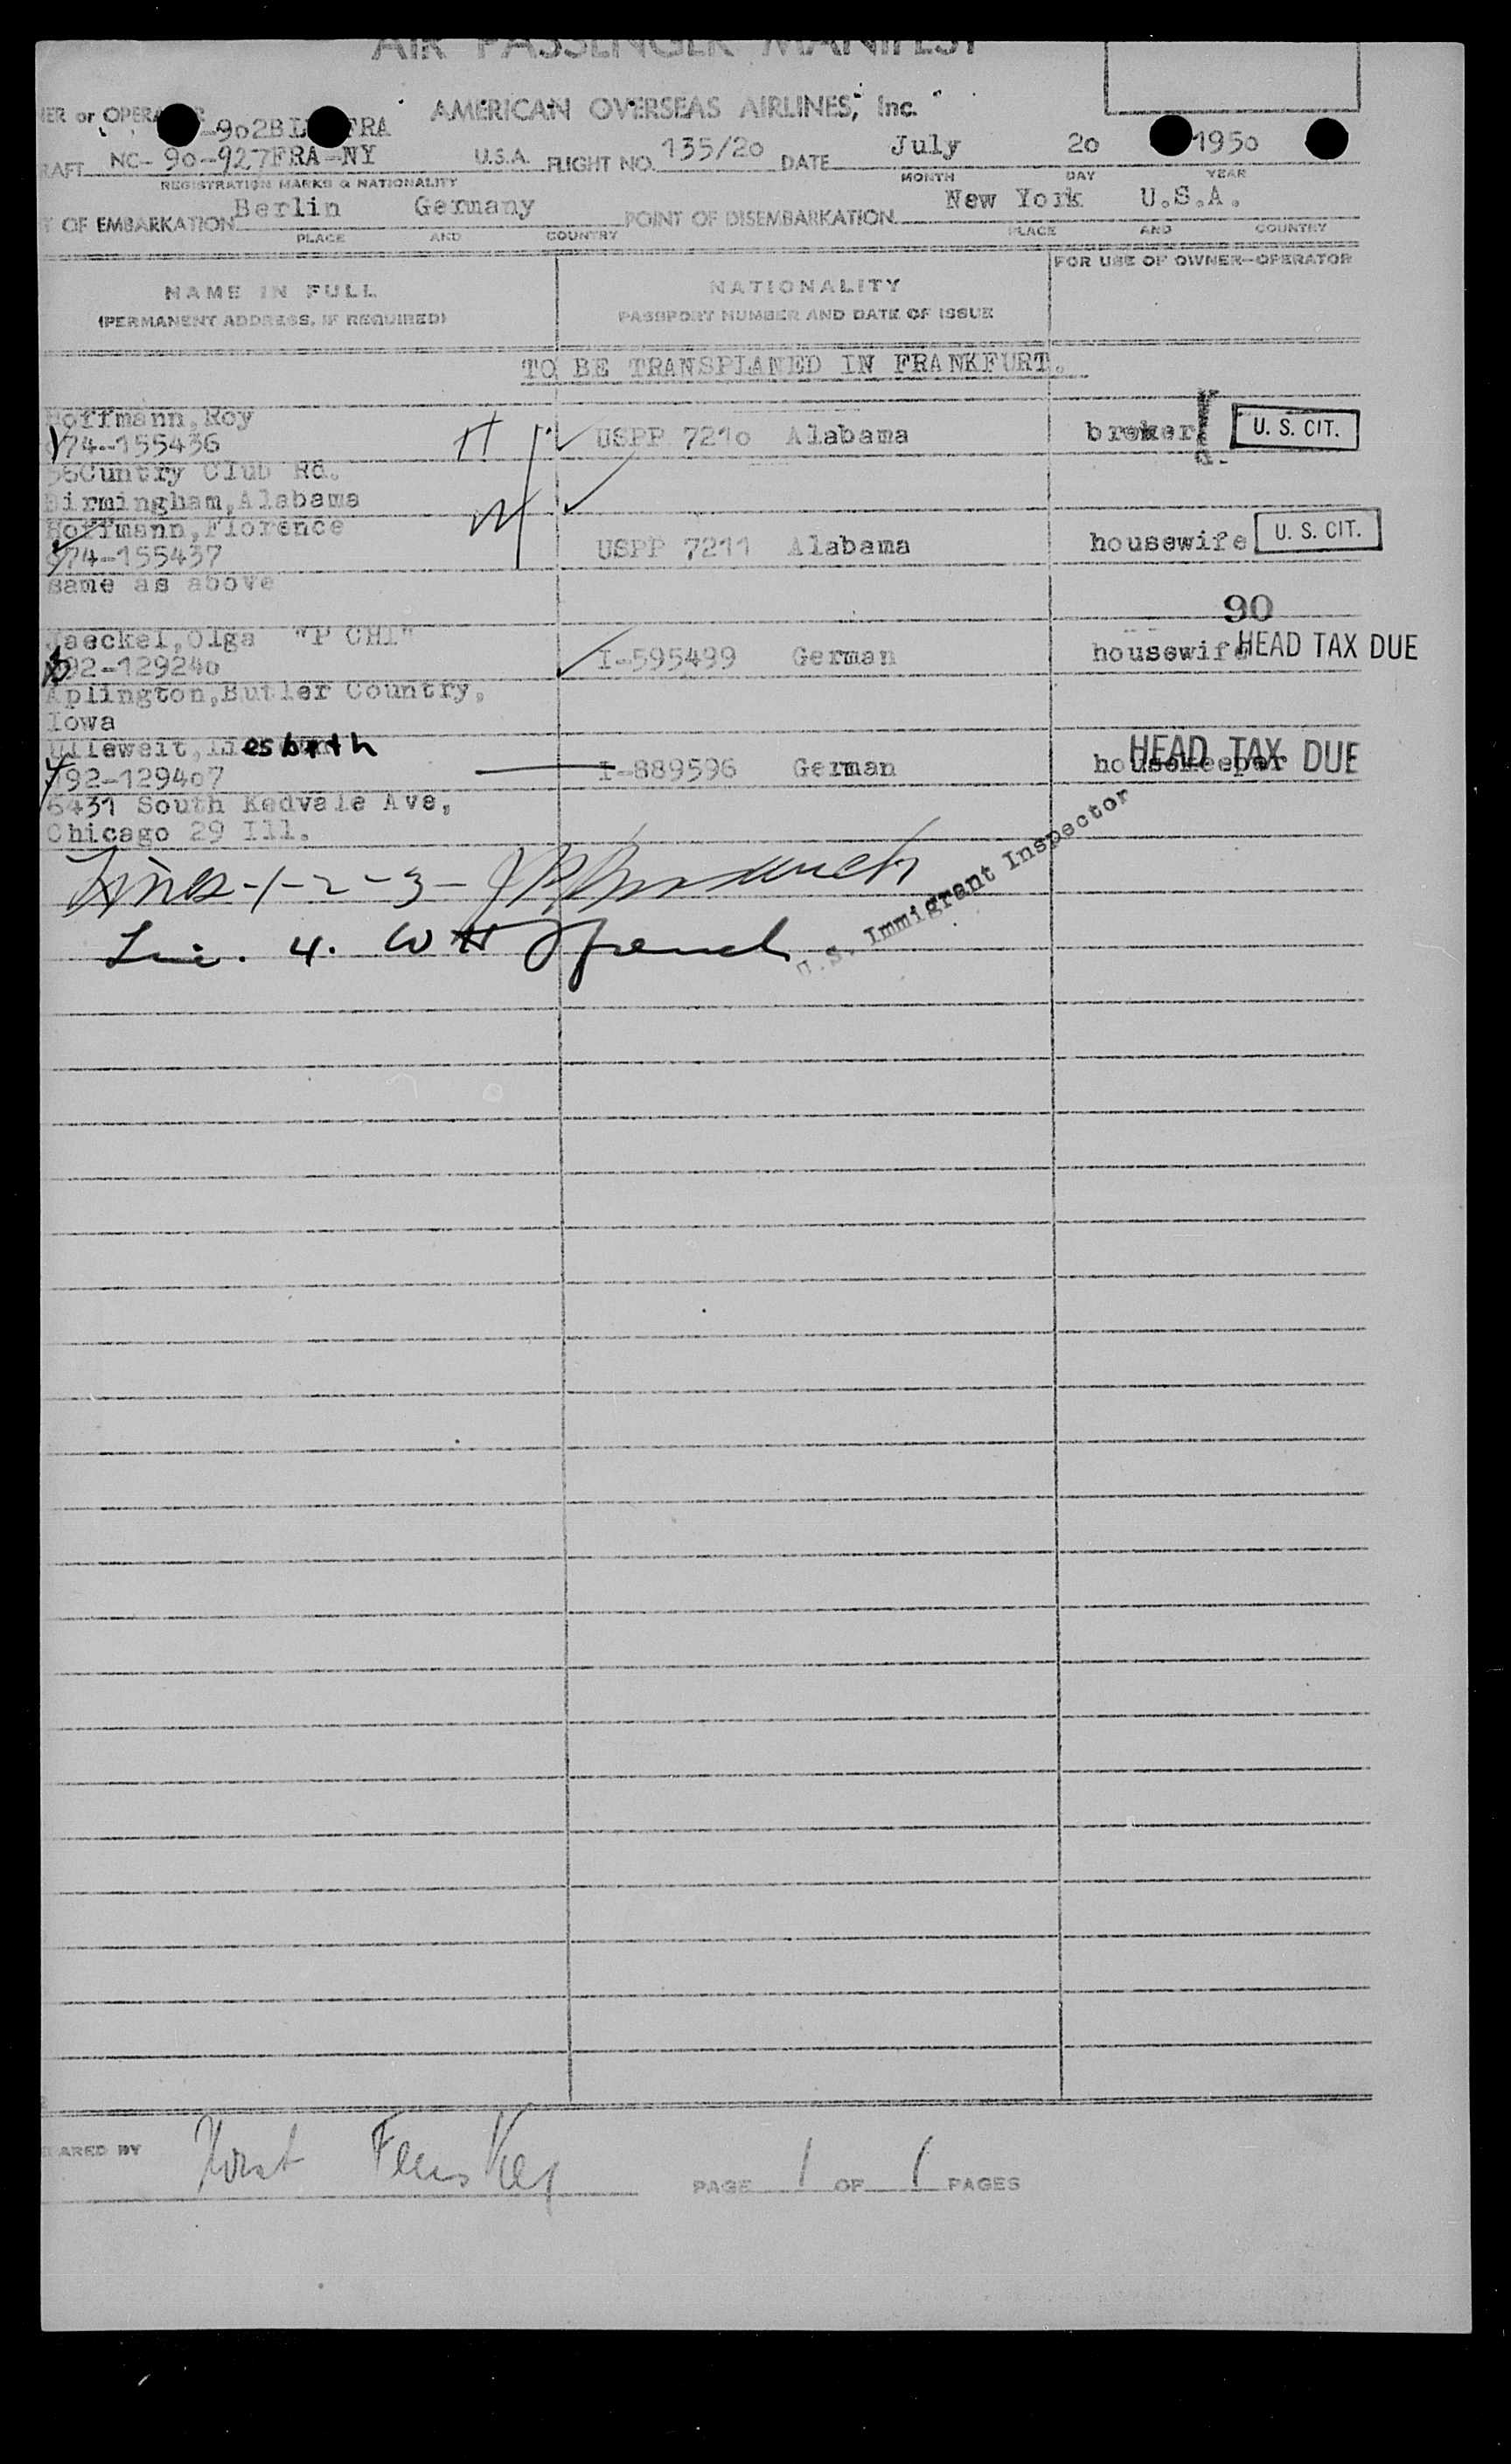 AIR PASSENGER MANIFEST
ER or OPERATOR AMERICAN OVERSEAS AIRLINES, Inc.
-902BL FRA
RAFT NC- 90-927FRA-NY U.S.A. FLIGHT NO. 135/20 DATE July 20 1950
REGISTRATION MARKS & NATIONALITY MONTH DAY YEAR
T OF EMBARKATION Berlin Germany POINT OF DISEMBARKATION New York U.S.A.
PLACE AND COUNTRY PLACE AND COUNTRY
NAME IN FULL NATIONALITY FOR USE OF OWNER-OPERATOR
(PERMANENT ADDRESS, IF REQUIRED) PASSPORT NUMBER AND DATE OF ISSUE
TO BE TRANSPLANED IN FRANKFURT.
Hoffmann,Roy
74-155436 USPP 7210 Alabama broker U. S. CIT.
Cuntry Club Rd.
Birmingham,Alabama
Hoffmann,Florence
74-155437 USPP 7211 Alabama housewife U. S. CIT.
same as above
90
Jaeckel,Olga "P CHI"
92-129240 I-595499 German housewife HEAD TAX DUE
Aplington,Butler Country,
Iowa
esbeth
92-129407 I-889596 German housekeeper HEAD TAX DUE
6431 South Kedvale Ave,
Chicago 29 Ill.
Lines-1-2-3-
Lin. 4. W H
U.S. Immigrant Inspector
ARED BY PAGE 1 OF 1 PAGES